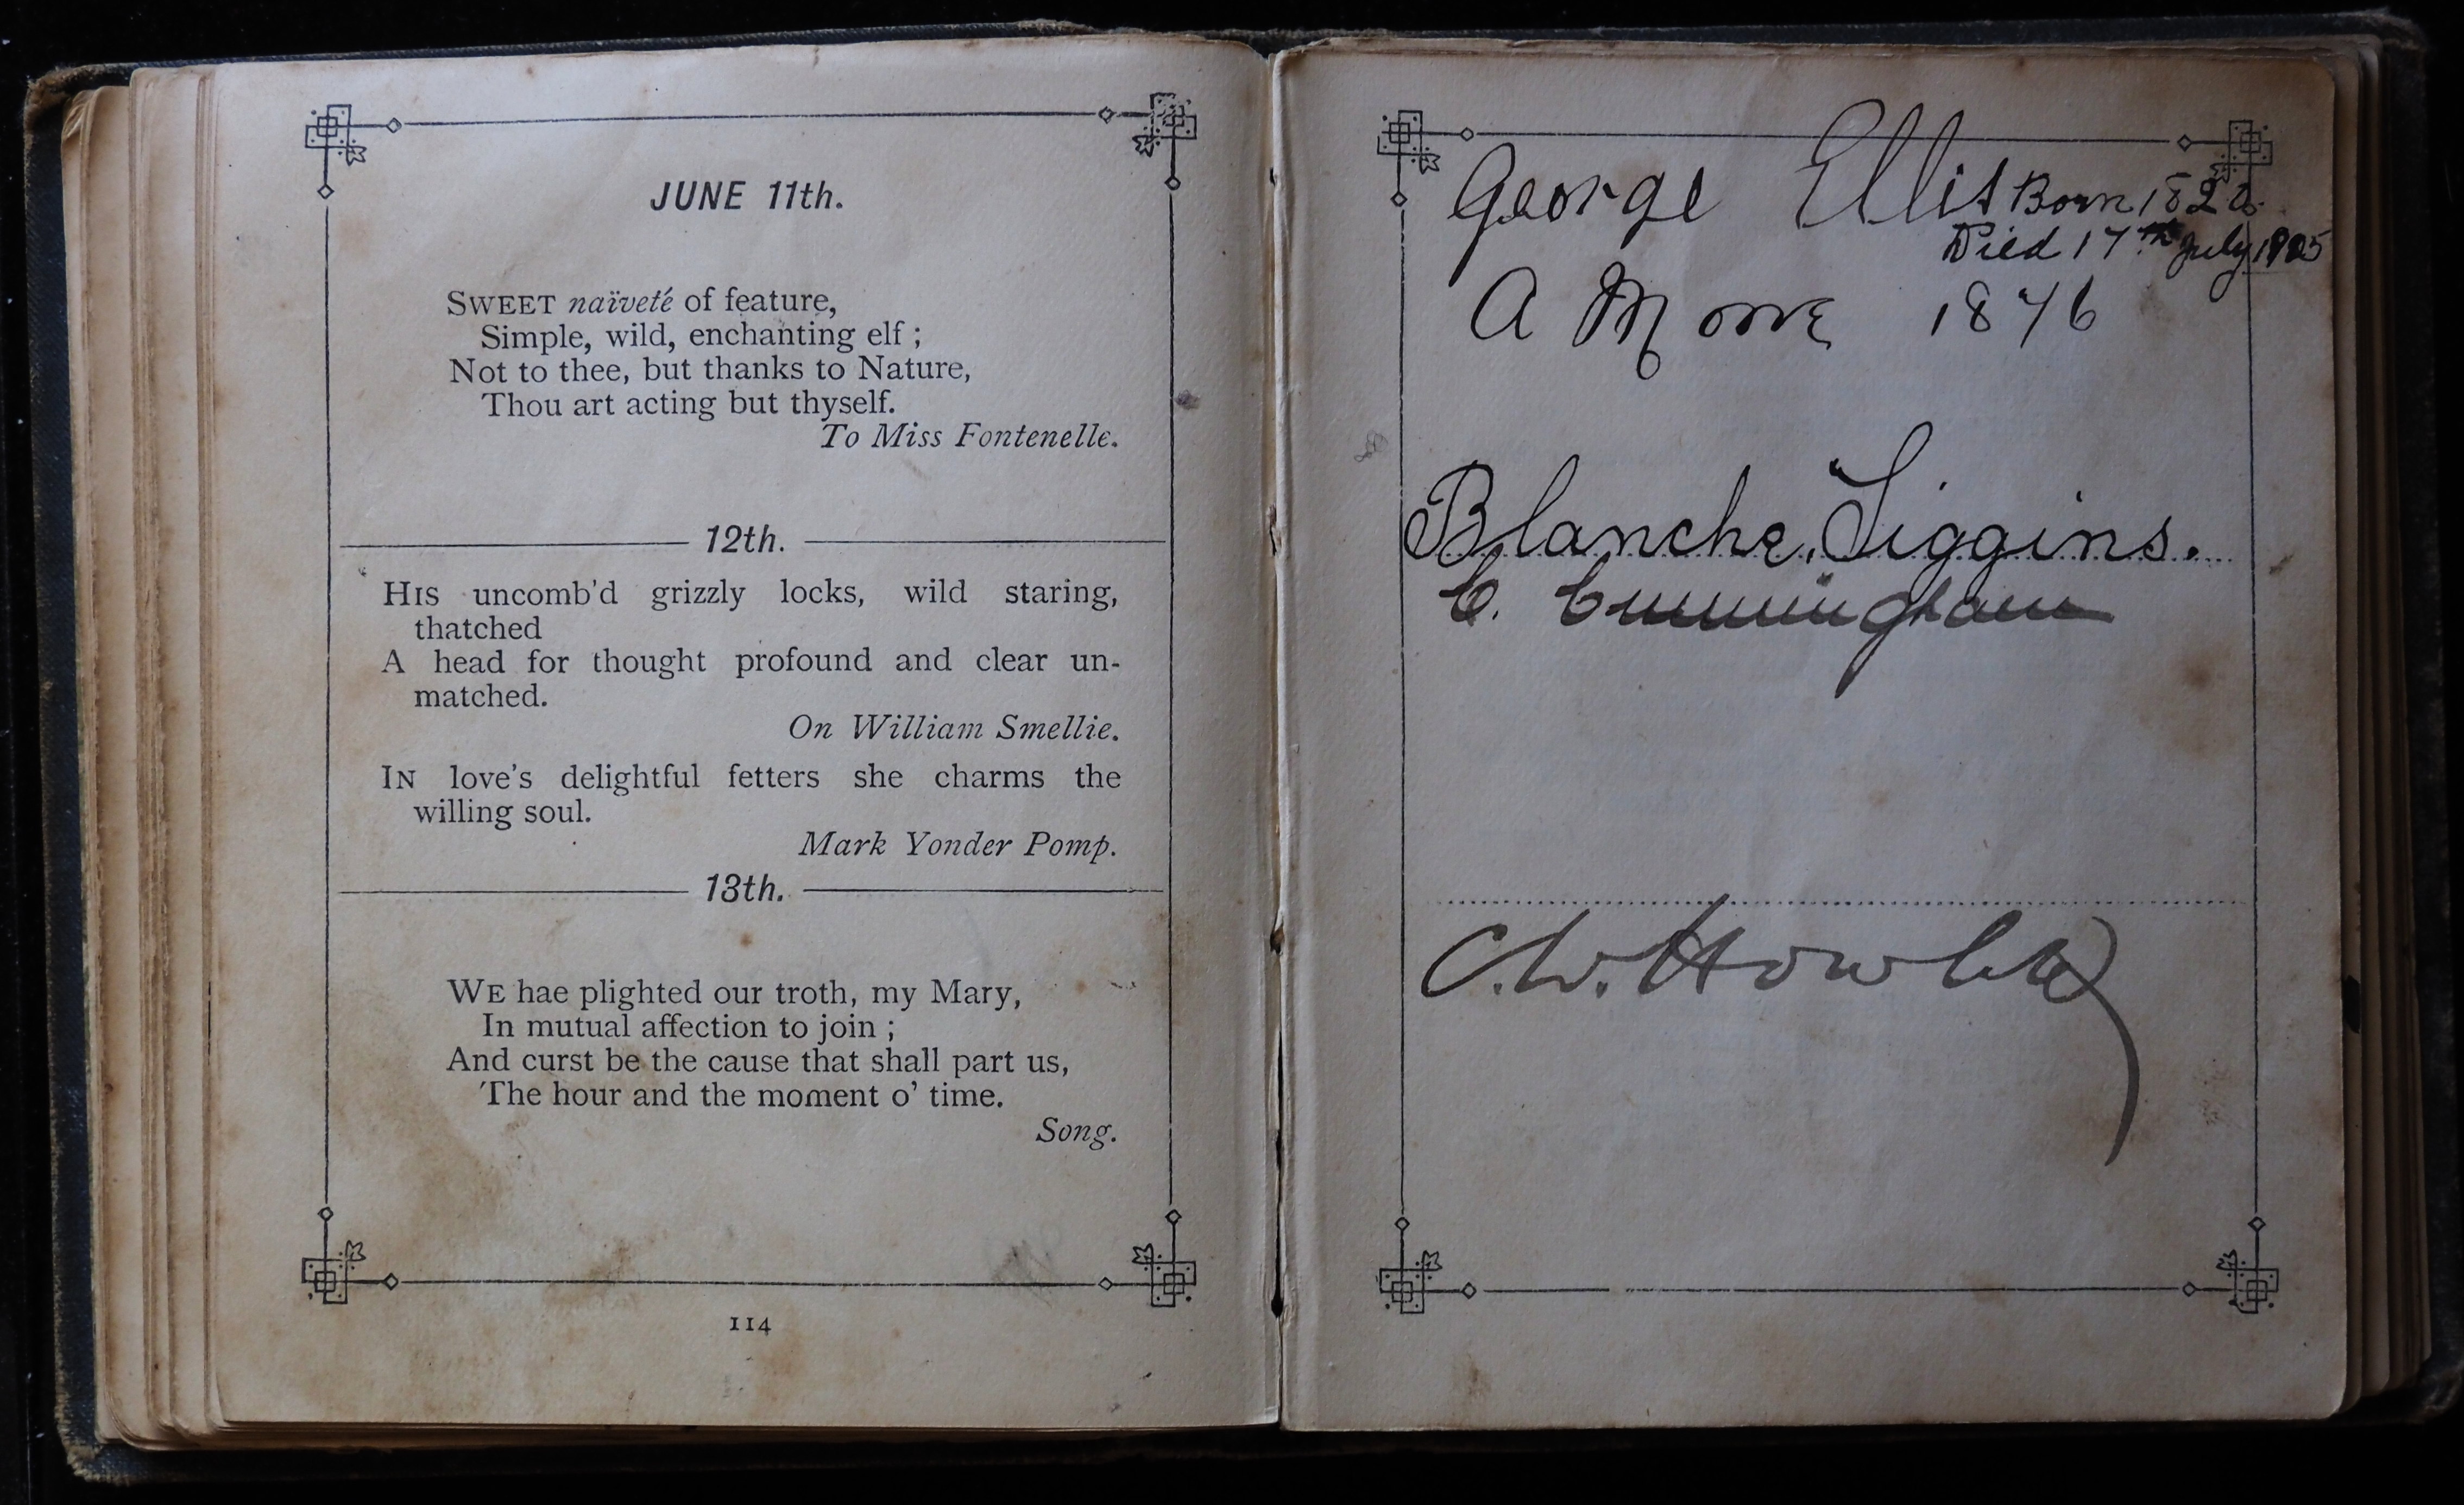 JUNE 11th.
SWEET naïveté of feature,
Simple, wild, enchanting elf ;
Not to thee, but thanks to Nature,
Thou art acting but thyself.
To Miss Fontenelle.
12th.
HIS uncomb'd grizzly locks, wild staring,
thatched
A head for thought profound and clear un-
matched.
On William Smellie.
IN love's delightful fetters she charms the
willing soul.
Mark Yonder Pomp.
13th.
WE hae plighted our troth, my Mary,
In mutual affection to join ;
And curst be the cause that shall part us,
The hour and the moment o' time.
Song.
114
George Ellis Born
Died 17th July 1905
A 1876
Blanche. Siggins.
C. Cunningham
C. W.